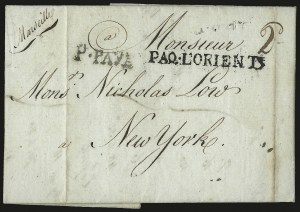 Marseille
à Monsieur 2
P.PAYÉ PAQ.L'ORIENT
Monsr. Nicholas Low
a New York.